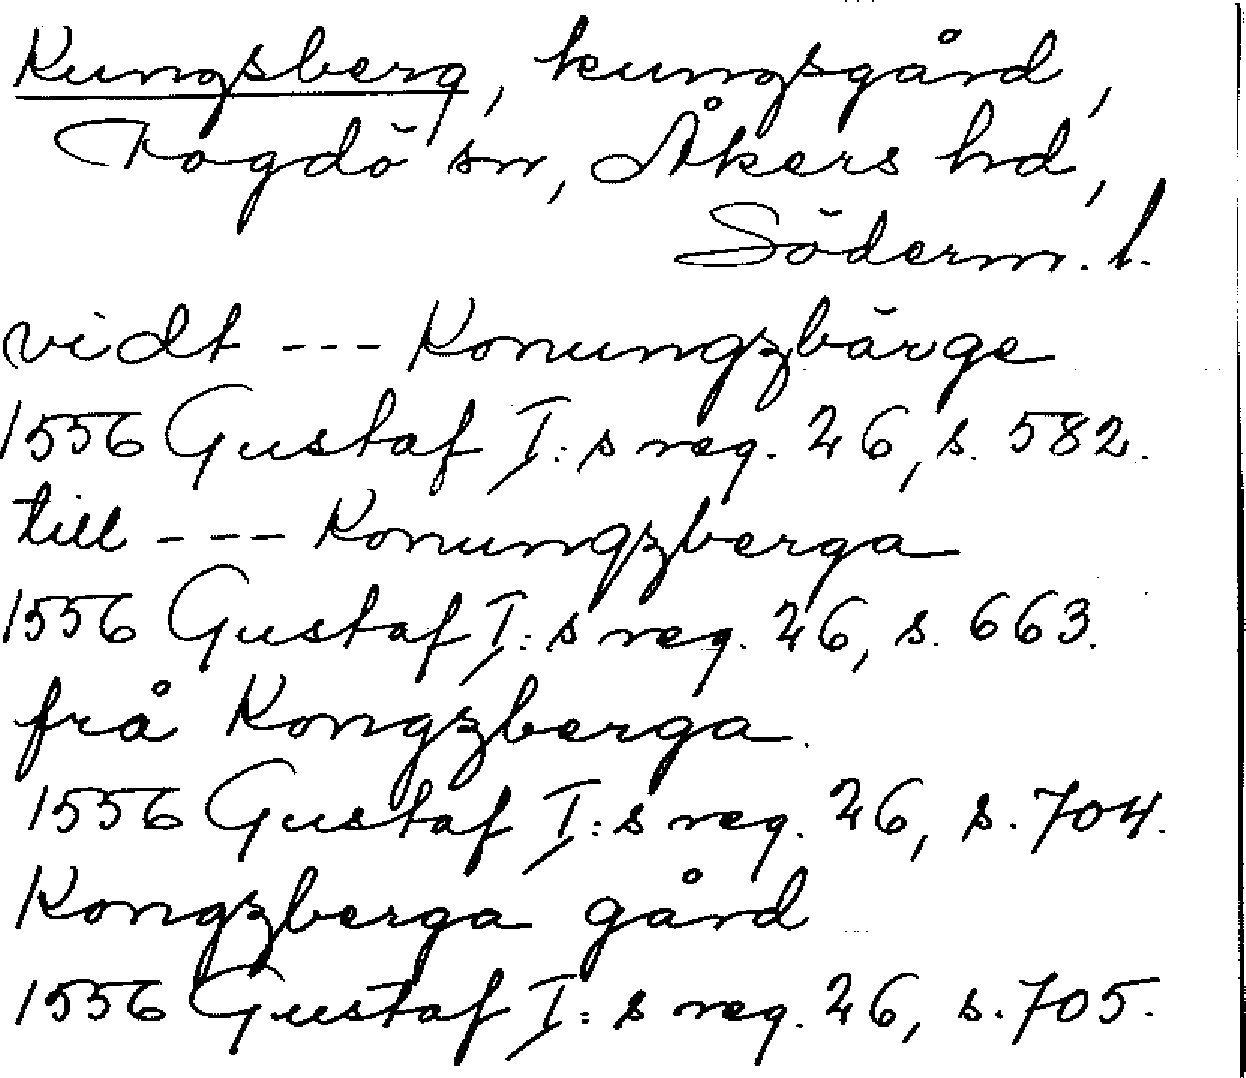 Kungsberg, kungsgård,
Fogdö sn, Åkers hd,
Söderm. l.
vidt --- Konungzbärge
1556 Gustaf I:s reg. 26, s. 582.
till --- Konungzberga
1556 Gustaf I:s reg. 26, s. 663.
frå Kongzberga
1556 Gustaf I:s reg. 26, s. 704.
Kongzberga gård
1556 Gustaf I:s reg. 26, s. 705.